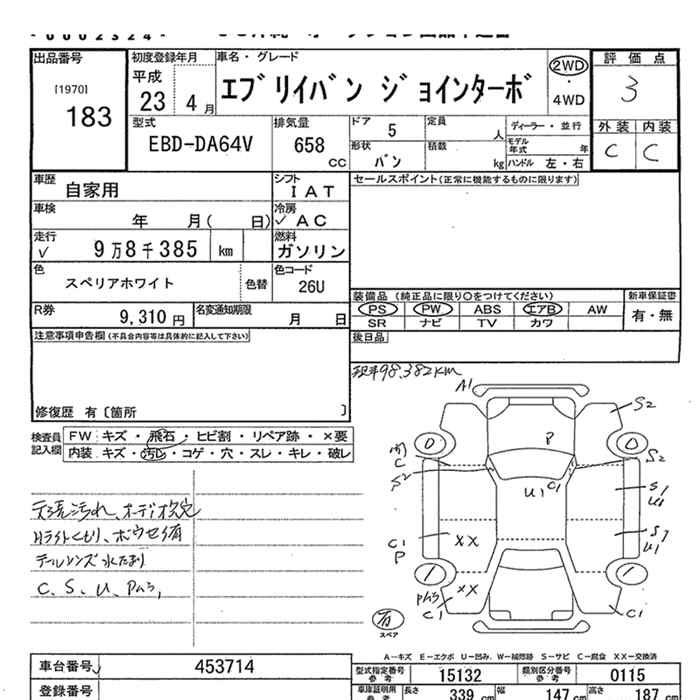 出品番号
[1970]
183
初度登録年月
平成
23 4月
車名・グレード
エブリイバン ジョインターボ
2WD
・
4WD
評価点
3
外装 内装
C C
型式
EBD-DA64V
排気量
658
CC
ドア 5
定員 人
形状 バン
積載 kg
ディーラー・並行
モデル年式 年
ハンドル 左・右
車歴
自家用
シフト
IAT
車検
年 月( 日)
冷房
✓AC
走行
✓ 9万8千385 km
燃料
ガソリン
色
スペリアホワイト
色替
色コード
26U
R券
9,310円
名変通知期限
月 日
セールスポイント(正常に機能するものに限ります)
装備品 (純正品に限り○をつけてください)
新車保証書
PS PW ABS エアB AW
SR ナビ TV カワ
有・無
後日品
注意事項申告欄(不具合内容等は具体的に記入して下さい)
修復歴 有〔箇所 〕
98,382km
検査員
記入欄
FW キズ・飛石・ヒビ割・リペア跡・×要
内装 キズ・汚レ・コゲ・穴・スレ・キレ・破レ
天張汚れ、オーディオ欠
Hライトくもり、ボウセイ有
テールレンズ水たまり
C、S、U、Pムラ、
A1
S2
P
0 0
C
S2
S2
U1 C1
S1
U1
C1
P
XX
S1
U1
1 1
XX
Pムラ
C1
C1
有
スペア
A−キズ E−エクボ U−凹み W−補修跡 S−サビ C−腐食 XX−交換済
車台番号
453714
登録番号
型式指定番号
参考
15132
類別区分番号
参考
0115
車庫証明用
参考
長さ
339 cm
幅
147 cm
高さ
187 cm